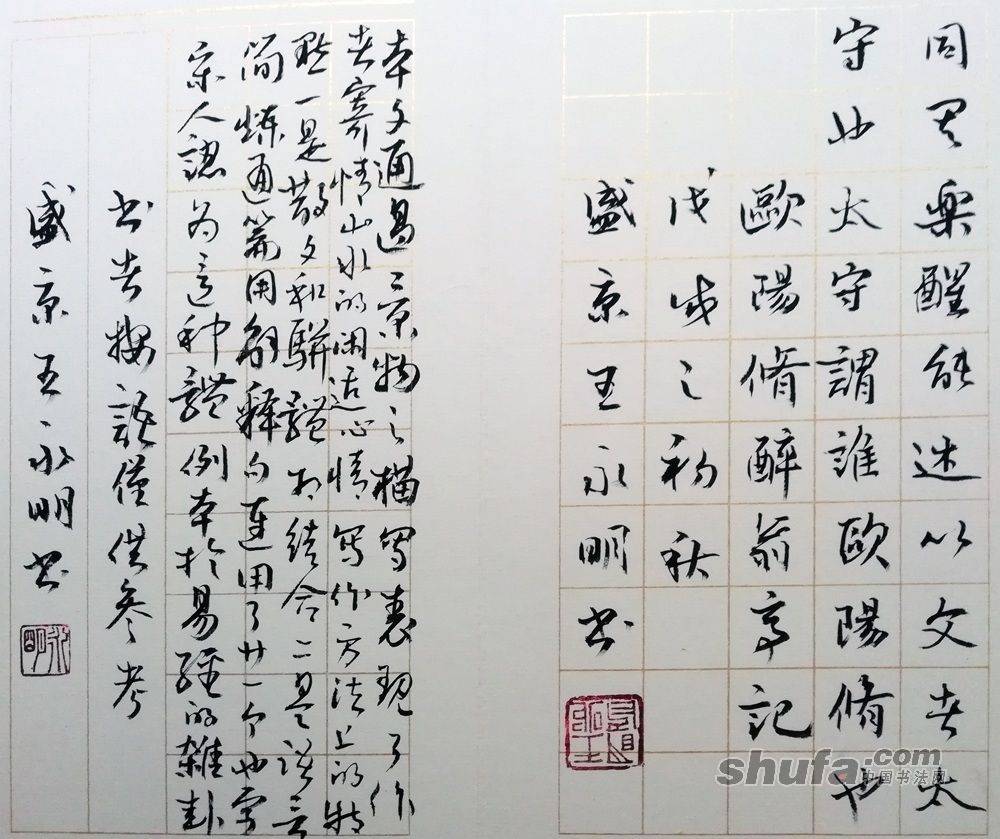 同其樂醒能述以文者太
守也太守謂誰歐陽脩也
歐陽脩醉翁亭記
戊戌之初秋
盛京王永明書
本文通過景物之描寫表現了作
者寄情山水的闲适心情寫作方法上的特
點一是散文和駢體相结合二是语言
简煉通篇用解釋句連用了廿一个也字
宋人認为這种體例本於易經的雜卦
書者按語僅供參考
盛京王永明書
永明
shufa.com
中国书法网